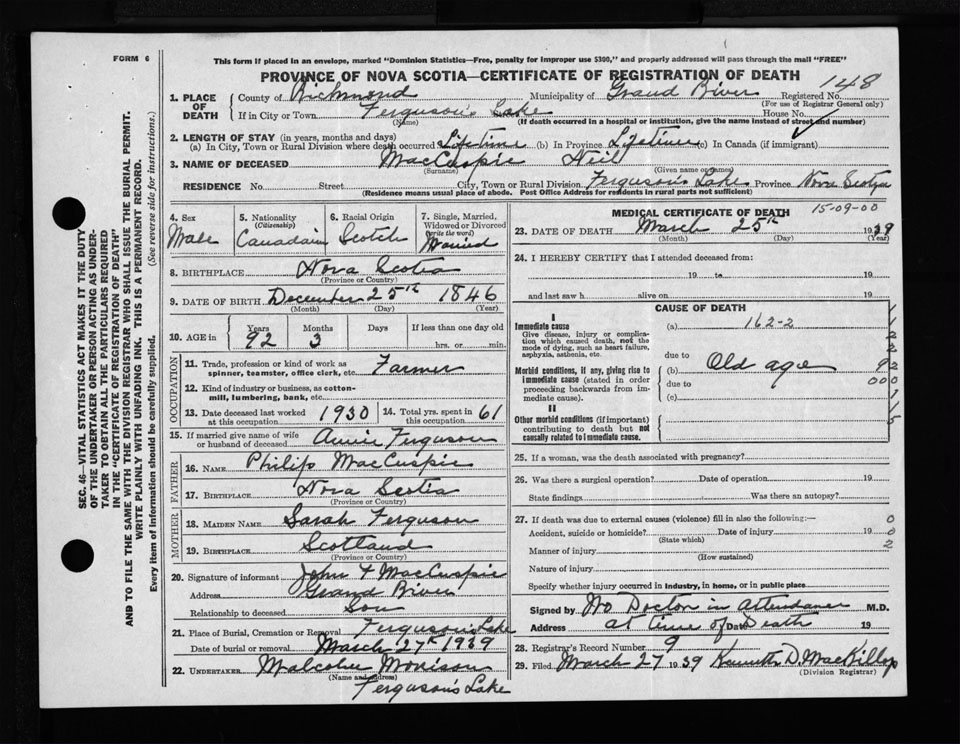 FORM 6
This form if placed in an envelope, marked "Dominion Statistics—Free, penalty for improper use $300," and properly addressed will pass through the mail "FREE"
PROVINCE OF NOVA SCOTIA—CERTIFICATE OF REGISTRATION OF DEATH
148
1. PLACE OF DEATH County of Richmond Municipality of Grand River Registered No.
(For use of Registrar General only)
If in City or Town Ferguson's Lake House No.
(Name) (If death occurred in a hospital or institution, give the name instead of street and number)
2. LENGTH OF STAY (in years, months and days)
(a) In City, Town or Rural Division where death occurred Lifetime (b) In Province Lifetime (c) In Canada (if immigrant)
3. NAME OF DECEASED MacCuspic Neil
(Surname) (Given name or names)
RESIDENCE No. Street City, Town or Rural Division Ferguson's Lake Province Nova Scotia
(Residence means usual place of abode. Post Office Address for residents in rural parts not sufficient)
4. Sex Male
5. Nationality (Citizenship) Canadain
6. Racial Origin Scotch
7. Single, Married, Widowed or Divorced (write the word) Married
8. BIRTHPLACE Nova Scotia
(Province or Country)
9. DATE OF BIRTH December 25th 1846
(Month) (Day) (Year)
10. AGE in Years 92 Months 3 Days If less than one day old hrs. or min.
OCCUPATION
11. Trade, profession or kind of work as spinner, teamster, office clerk, etc. Farmer
12. Kind of industry or business, as cotton-mill, lumbering, bank, etc.
13. Date deceased last worked at this occupation 1930
14. Total yrs. spent in this occupation 61
15. If married give name of wife or husband of deceased Annie Ferguson
FATHER
16. NAME Philip MacCuspic
17. BIRTHPLACE Nova Scotia
(Province or Country)
MOTHER
18. MAIDEN NAME Sarah Ferguson
19. BIRTHPLACE Scotland
(Province or Country)
20. Signature of informant John MacCuspic
Address Grand River
Relationship to deceased Son
21. Place of Burial, Cremation or Removal Ferguson's Lake
Date of burial or removal March 27th 1939
22. UNDERTAKER Malcolm Morrison
(Name and address)
Ferguson's Lake
MEDICAL CERTIFICATE OF DEATH
15-09-00
23. DATE OF DEATH March 25th 1939
(Month) (Day) (Year)
24. I HEREBY CERTIFY that I attended deceased from:
19 to 19
and last saw h alive on 19
CAUSE OF DEATH
I
Immediate cause
Give disease, injury or complication which caused death, not the mode of dying, such as heart failure, asphyxia, asthenia, etc.
(a) 162-2
due to
Morbid conditions, if any, giving rise to immediate cause (stated in order proceeding backwards from immediate cause).
(b) Old age
due to
(c)
II
Other morbid conditions (if important) contributing to death but not causally related to immediate cause.
25. If a woman, was the death associated with pregnancy?
26. Was there a surgical operation? Date of operation 19
State findings Was there an autopsy?
27. If death was due to external causes (violence) fill in also the following:—
Accident, suicide or homicide? Date of injury 19
(State which)
Manner of injury
(How sustained)
Nature of injury
Specify whether injury occurred in industry, in home, or in public place
0
0
2
Signed by No Doctor in attendance M.D.
Address at time of Death Date 19
28. Registrar's Record Number 9
29. Filed March 27 1939 Kenneth D. MacKillop
(Division Registrar)
SEC. 46—VITAL STATISTICS ACT MAKES IT THE DUTY
OF THE UNDERTAKER OR PERSON ACTING AS UNDER-
TAKER TO OBTAIN ALL THE PARTICULARS REQUIRED
IN THE "CERTIFICATE OF REGISTRATION OF DEATH"
AND TO FILE THE SAME WITH THE DIVISION REGISTRAR WHO SHALL ISSUE THE BURIAL PERMIT.
WRITE PLAINLY WITH UNFADING INK. THIS IS A PERMANENT RECORD.
Every item of information should be carefully supplied. (See reverse side for instructions.)